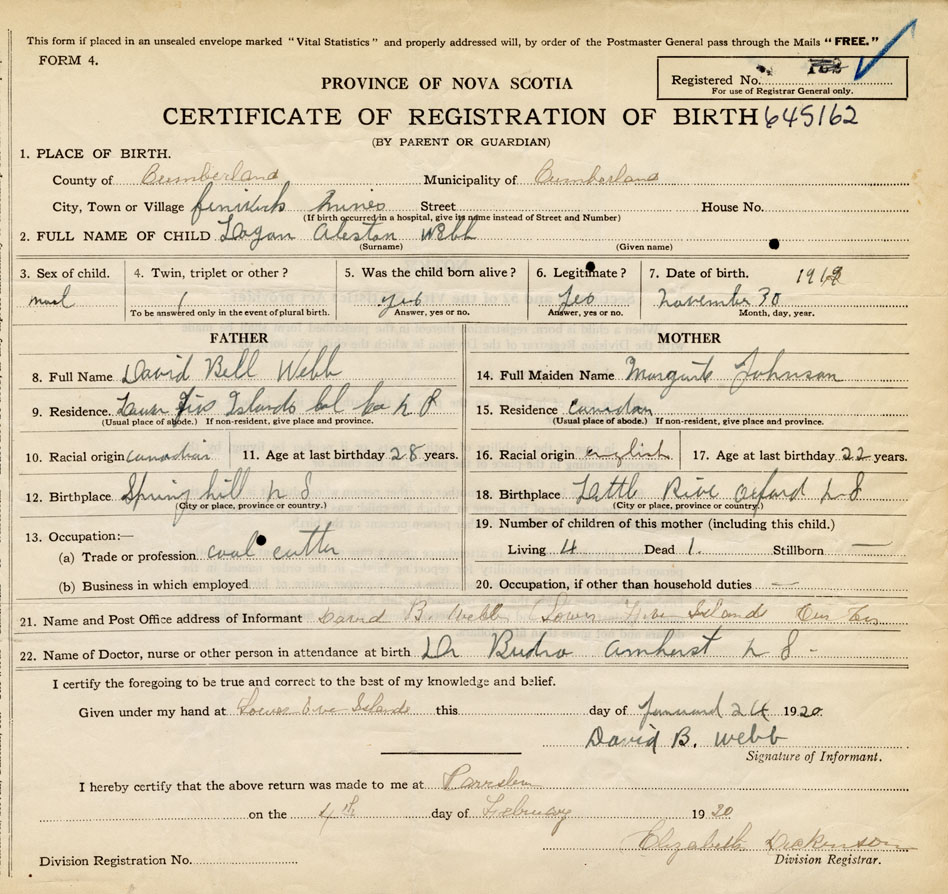 This form if placed in an unsealed envelope marked "Vital Statistics" and properly addressed will, by order of the Postmaster General pass through the Mails "FREE."
FORM 4.
Registered No.
For use of Registrar General only.
PROVINCE OF NOVA SCOTIA
CERTIFICATE OF REGISTRATION OF BIRTH 645162
(BY PARENT OR GUARDIAN)
1. PLACE OF BIRTH.
County of Cumberland Municipality of Cumberland
City, Town or Village Mines Street House No.
(If birth occurred in a hospital, give its name instead of Street and Number)
2. FULL NAME OF CHILD Logan Webb
(Surname) (Given name)
3. Sex of child. 4. Twin, triplet or other? 5. Was the child born alive? 6. Legitimate? 7. Date of birth.
yes Yes November 30
To be answered only in the event of plural birth. Answer, yes or no. Answer, yes or no. Month, day, year.
FATHER MOTHER
8. Full Name David Bell Webb
14. Full Maiden Name Johnson
9. Residence. Islands
(Usual place of abode.) If non-resident, give place and province.
15. Residence Canadan
(Usual place of abode.) If non-resident, give place and province.
10. Racial origin canadian 11. Age at last birthday 28 years.
16. Racial origin english 17. Age at last birthday 22 years.
12. Birthplace Spring hill N S
(City or place, province or country.)
18. Birthplace Oxford N S
(City or place, province or country.)
13. Occupation:—
(a) Trade or profession coal cutter
(b) Business in which employed
19. Number of children of this mother (including this child.)
Living 4 Dead 1. Stillborn —
20. Occupation, if other than household duties —
21. Name and Post Office address of Informant David B. Webb Lower Five Islands
22. Name of Doctor, nurse or other person in attendance at birth Dr Budro amherst N S -
I certify the foregoing to be true and correct to the best of my knowledge and belief.
Given under my hand at Lower Five Islands this day of 24 1920
David B. Webb
Signature of Informant.
I hereby certify that the above return was made to me at
on the 4th day of February 1920
Elizabeth Dickenson
Division Registrar.
Division Registration No.